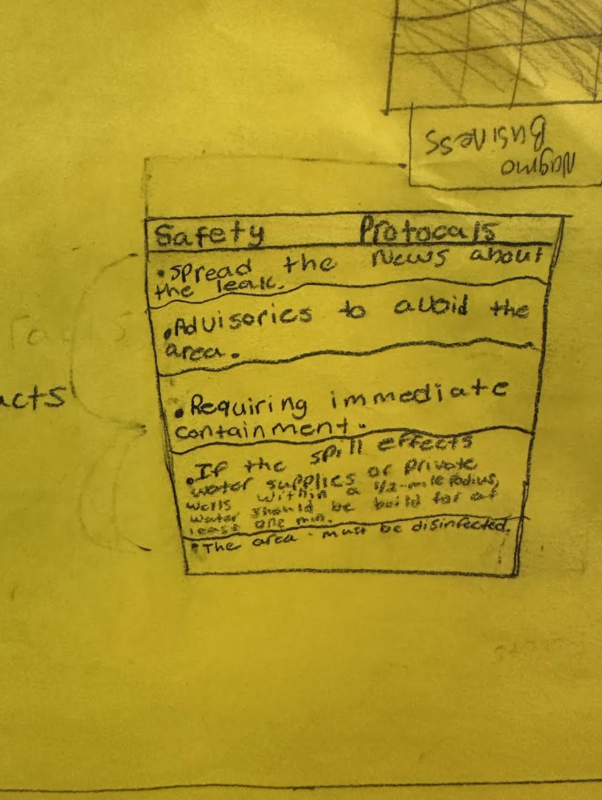 Nagmo
Business
Safety Protocals
• Spread the News about
the leak.
• Advisories to avoid the
area.
acts
• Requiring immediate
containment.
• If the spill effects
water supplies or private
wells within a 1/2-mile radius,
water should be boild for at
least one min.
• The area must be disinfected.